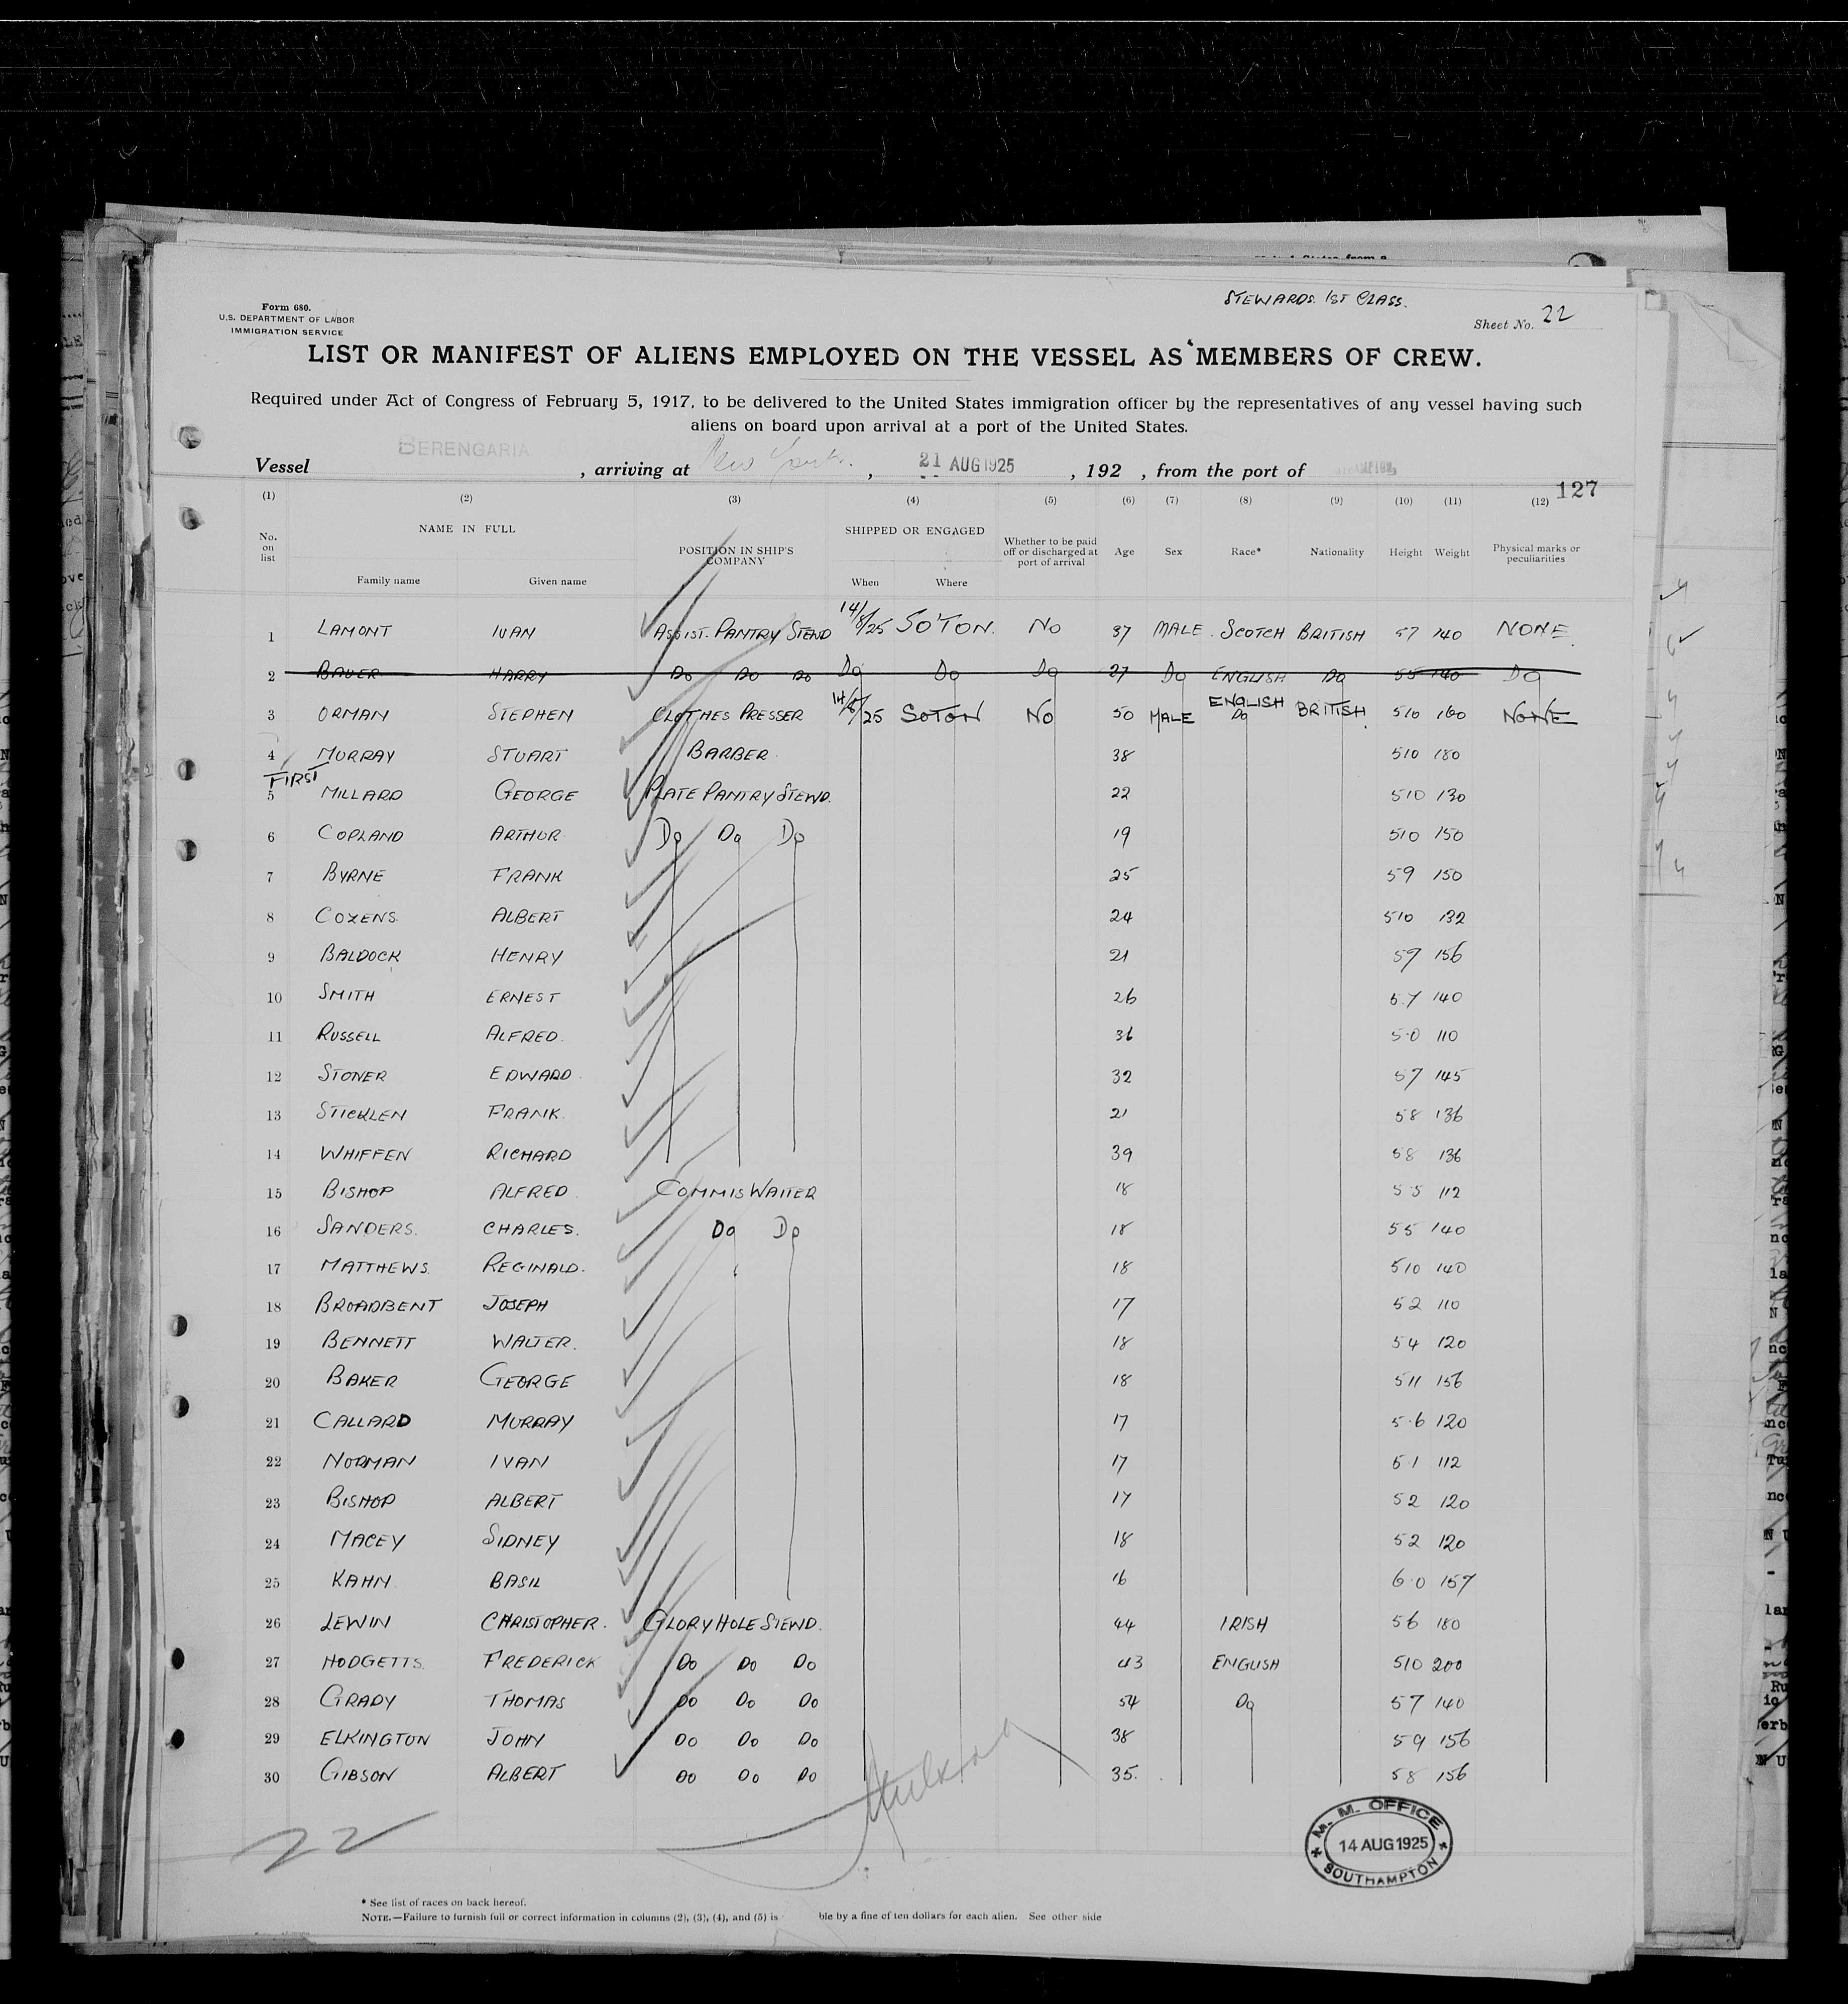 STEWARDS. 1ST CLASS.
Form 680.
U.S. DEPARTMENT OF LABOR
IMMIGRATION SERVICE
Sheet No. 22
LIST OR MANIFEST OF ALIENS EMPLOYED ON THE VESSEL AS MEMBERS OF CREW.
Required under Act of Congress of February 5, 1917, to be delivered to the United States immigration officer by the representatives of any vessel having such
aliens on board upon arrival at a port of the United States.
Vessel BERENGARIA , arriving at New York , 21 AUG 1925 , 192 , from the port of
127
(1) (2) (3) (4) (5) (6) (7) (8) (9) (10) (11) (12)
No. on list NAME IN FULL POSITION IN SHIP'S COMPANY SHIPPED OR ENGAGED Whether to be paid off or discharged at port of arrival Age Sex Race* Nationality Height Weight Physical marks or peculiarities
Family name Given name When Where
1 LAMONT IVAN ASSIST. PANTRY STEWD 14/8/25 SOTON. NO 37 MALE. SCOTCH BRITISH 57 140 NONE.
2 BAKER HARRY DO DO DO DO DO DO 27 DO ENGLISH DO 55 140 DO
3 ORMAN STEPHEN CLOTHES PRESSER 14/8/25 SOTON NO 50 MALE ENGLISH DO BRITISH. 510 160 NONE
4 MURRAY STUART BARBER 38 510 180
FIRST
5 MILLARD GEORGE PLATE PANTRY STEWD. 22 510 130
6 COPLAND ARTHUR. DO DO DO 19 510 150
7 BYRNE FRANK 25 59 150
8 COZENS. ALBERT 24 510 132
9 BALDOCK HENRY 21 59 156
10 SMITH ERNEST 26 5.7 140
11 RUSSELL ALFRED. 36 5.0 110
12 STONER EDWARD. 32 57 145
13 STICKLEN FRANK. 21 58 136
14 WHIFFEN RICHARD 39 58 136
15 BISHOP ALFRED. COMMIS WAITER 18 55 112
16 SANDERS. CHARLES. DO DO 18 55 140
17 MATTHEWS. REGINALD. 18 510 140
18 BROADBENT JOSEPH 17 52 110
19 BENNETT WALTER. 18 54 120
20 BAKER GEORGE 18 511 156
21 CALLARD MURRAY 17 5.6 120
22 NORMAN IVAN 17 5.1 112
23 BISHOP ALBERT 17 52 120
24 MACEY SIDNEY 18 52 120
25 KAHN. BASIL 16 6.0 157
26 LEWIN CHRISTOPHER. GLORY HOLE STEWD. 44 IRISH 56 180
27 HODGETTS. FREDERICK DO DO DO 43 ENGLISH 510 200
28 GRADY THOMAS DO DO DO 54 DO 57 140
29 ELKINGTON JOHN DO DO DO 38 59 156
30 GIBSON ALBERT DO DO DO 35. 58 156
22
M. M. OFFICE
14 AUG 1925
SOUTHAMPTON
* See list of races on back hereof.
NOTE.—Failure to furnish full or correct information in columns (2), (3), (4), and (5) is ble by a fine of ten dollars for each alien. See other side